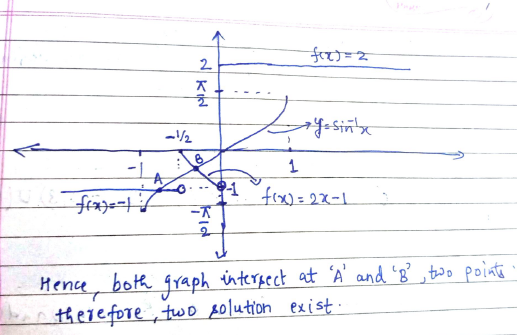 f(x) = 2
2
π/2
y = sin⁻¹x
-1/2
-1
B
1
A
f(x) = -1
-1
f(x) = 2x - 1
-π/2
Hence, both graph intersect at 'A' and 'B', two points
therefore, two solution exist.